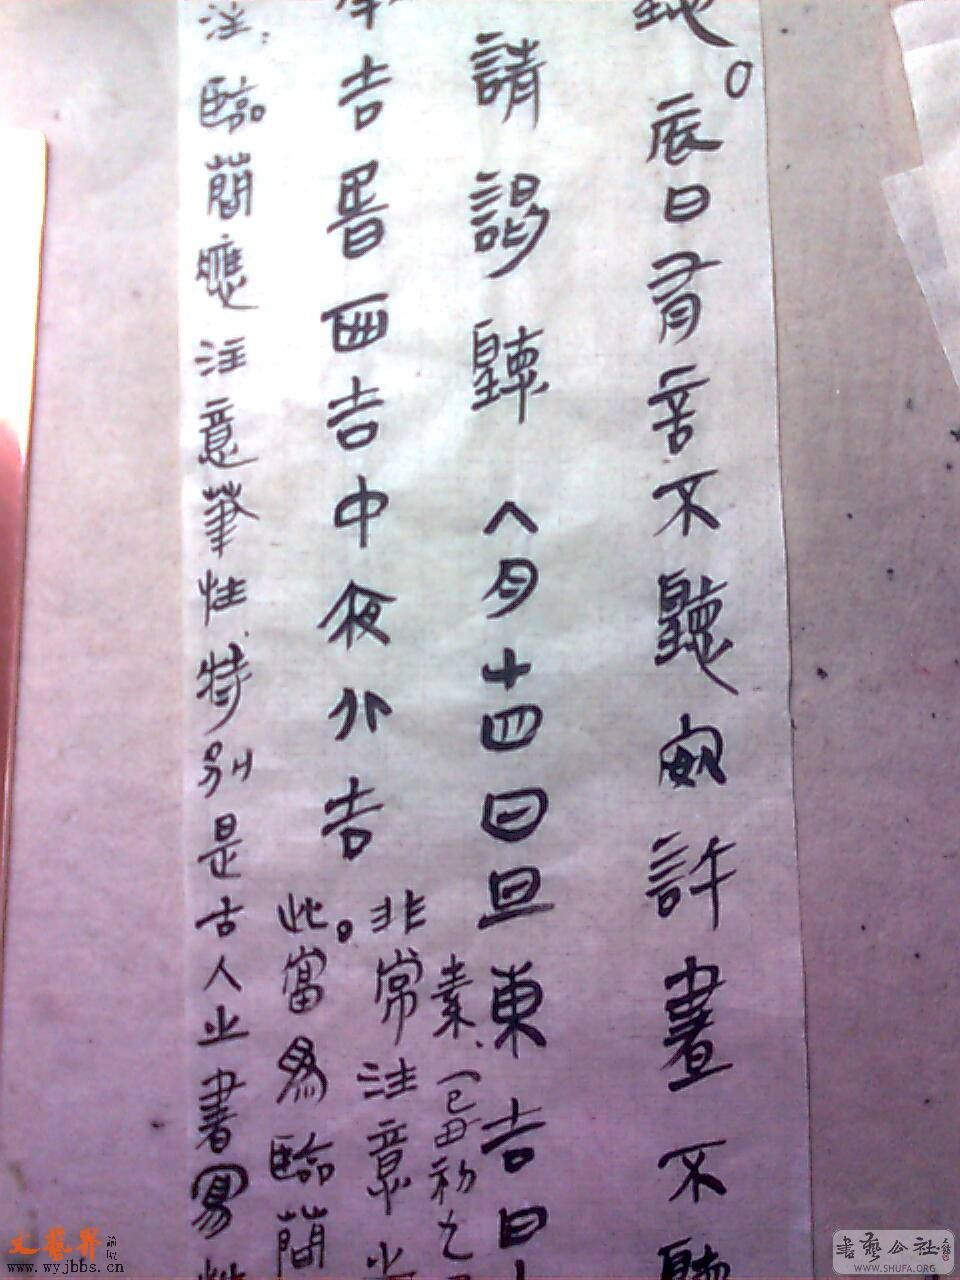 聽。辰日有言不聽必許晝不聽
請謁聽八月十四日旦東吉日
素
吉昏西吉中夜北吉
非常注意之
此當爲臨簡
注:臨簡應注意筆性特別是古人之書寫
文藝界論壇
www.wyjbbs.cn
書藝公社
WWW.SHUFA.ORG